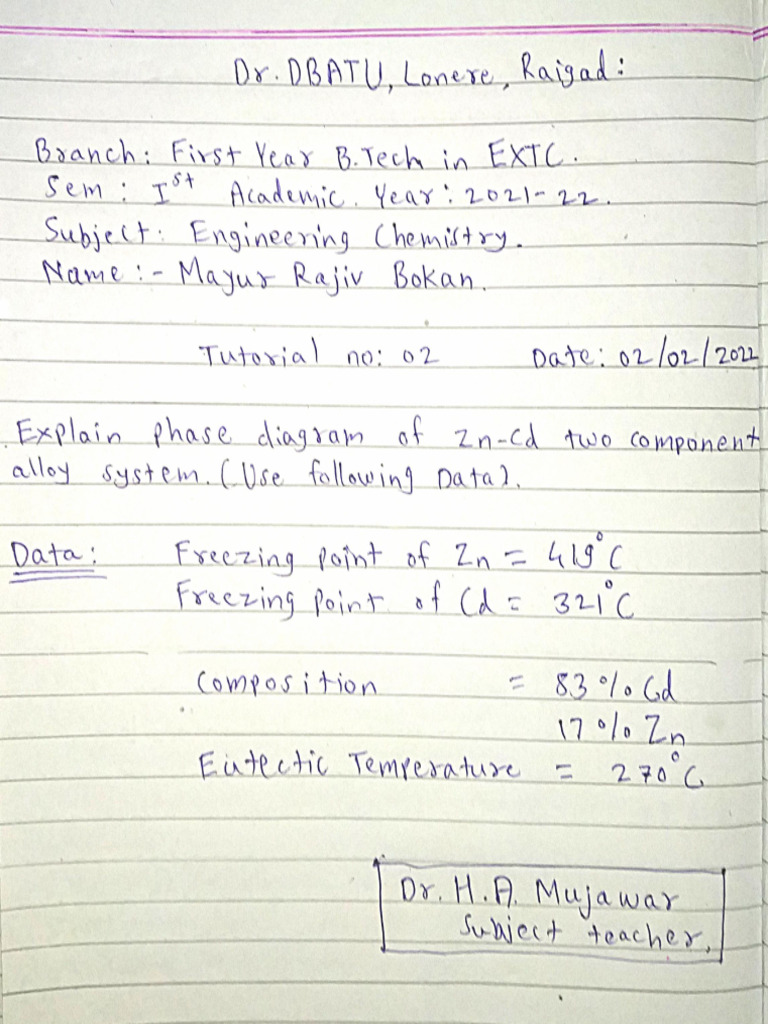 Dr. DBATU, Lonere, Raigad:
Branch: First Year B.Tech in EXTC.
Sem: Ist Academic. Year: 2021-22.
Subject: Engineering Chemistry.
Name:- Mayur Rajiv Bokan.
Tutorial no: 02 Date: 02/02/2022
Explain phase diagram of Zn-Cd two component
alloy system. (Use following Data).
Data: Freezing point of Zn = 419°C
Freezing point of Cd = 321°C
Composition = 83% Cd
17% Zn
Eutectic Temperature = 270°C
Dr. H.A. Mujawar
Subject teacher.